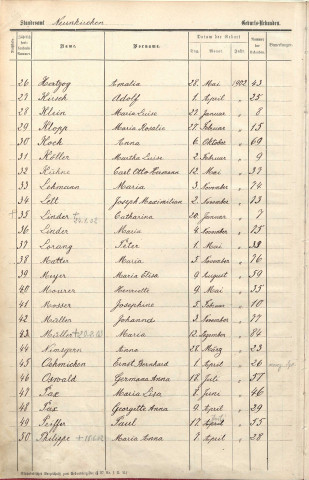 Standesamt Neunkirchen Geburts-Urkunden.
Name. Vorname. Datum der Geburt
Tag. Monat Jahr
26 Hertzog Amalia 28. Mai 1902 43
27 Kirsch Adolf 1. April " 25
28 Klein Maria Luise 27. Januar " 8
29 Klopp Maria Rosalie 27. Februar " 15
30 Koch Anna 6. Oktober " 69
31 Köller Martha Luise 2. Februar " 9
32 Kühne Carl Otto Hermann 12. Mai " 37
33 Lehmann Maria 3. November " 74
34 Lett Joseph Maximilian 2. November " 73
+ 35 Linder Catharina 20. Januar " 7
36 Linder Maria 4. November " 75
37 Lorung Peter 1. Mai " 38
38 Matter Maria 5. November " 76
39 Meyer Maria Elisa 9. August " 59
40 Maurer Henriette 9. Mai " 35
41 Messer Josephine 5. Februar " 10
42 Müller Johannd 3. November " 77
43 Müller Maria 12. September " 64
44 Anna 28. März " 23
45 Oehmichen Ernst Bernhard 1. April " 26
46 Oswald Germana Anna 18. Juli " 57
47 Sax Maria Lisa 8. Juni " 46
48 Sax Georgette Anna 9. April " 39
49 Paul 17. " 55
50 Philippe + Maria Anna 7. April " 28